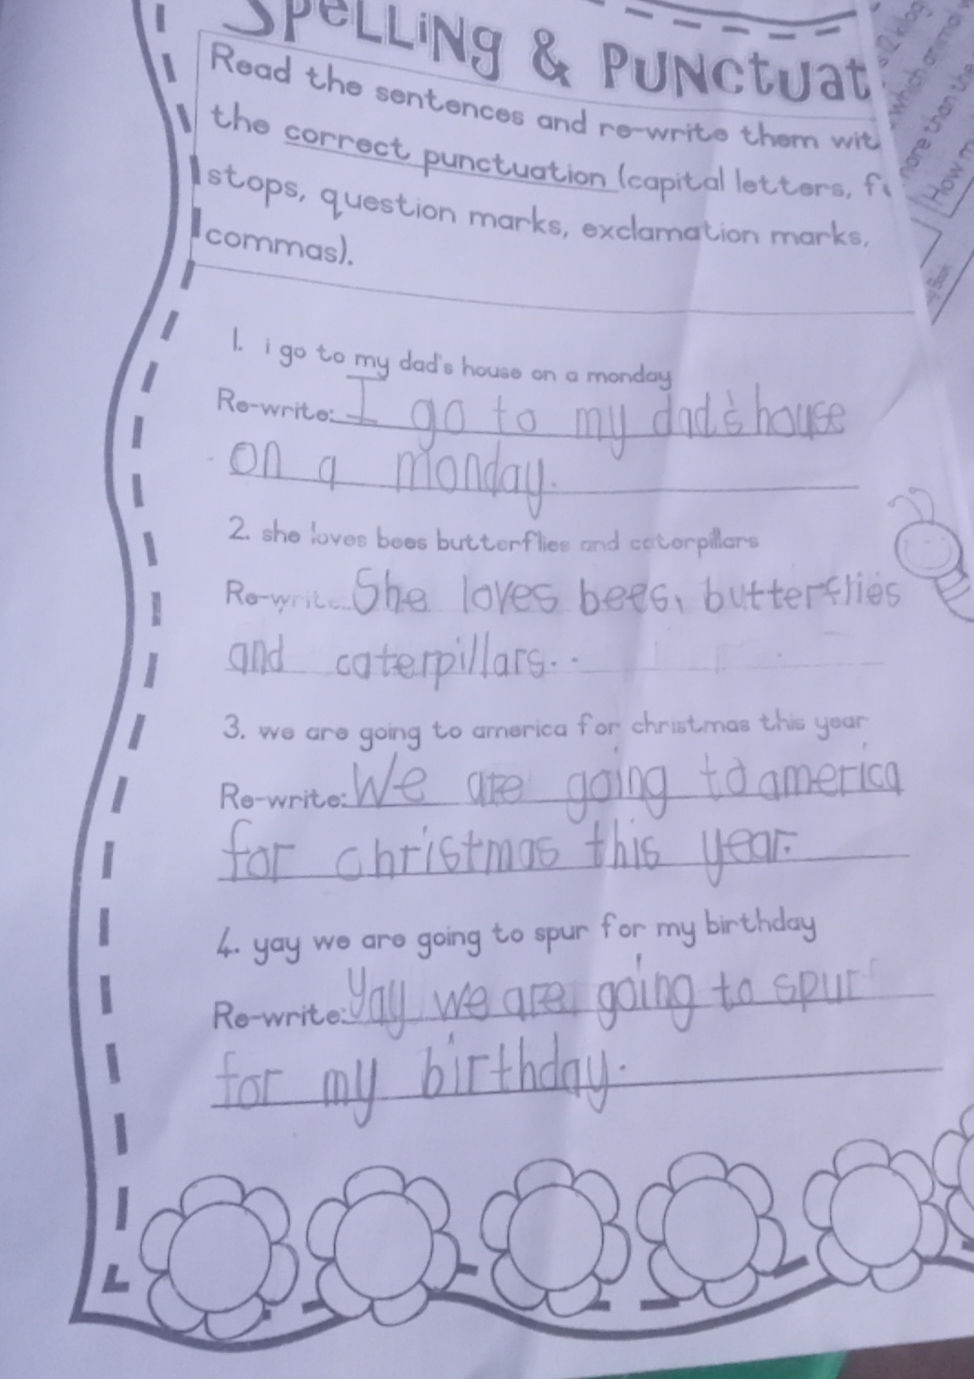 SPELLING & PUNCTUAT
Read the sentences and re-write them wit
the correct punctuation (capital letters, fu
stops, question marks, exclamation marks,
commas).
1. i go to my dad's house on a monday
Re-write: I go to my dad's house
on a monday.
2. she loves bees butterflies and caterpillars
Re-write: She loves bees, butterflies
and caterpillars..
3. we are going to america for christmas this year
Re-write: We are going to america
for christmas this year.
4. yay we are going to spur for my birthday
Re-write: Yay we are going to spur
for my birthday.
which animal
more than the
How m